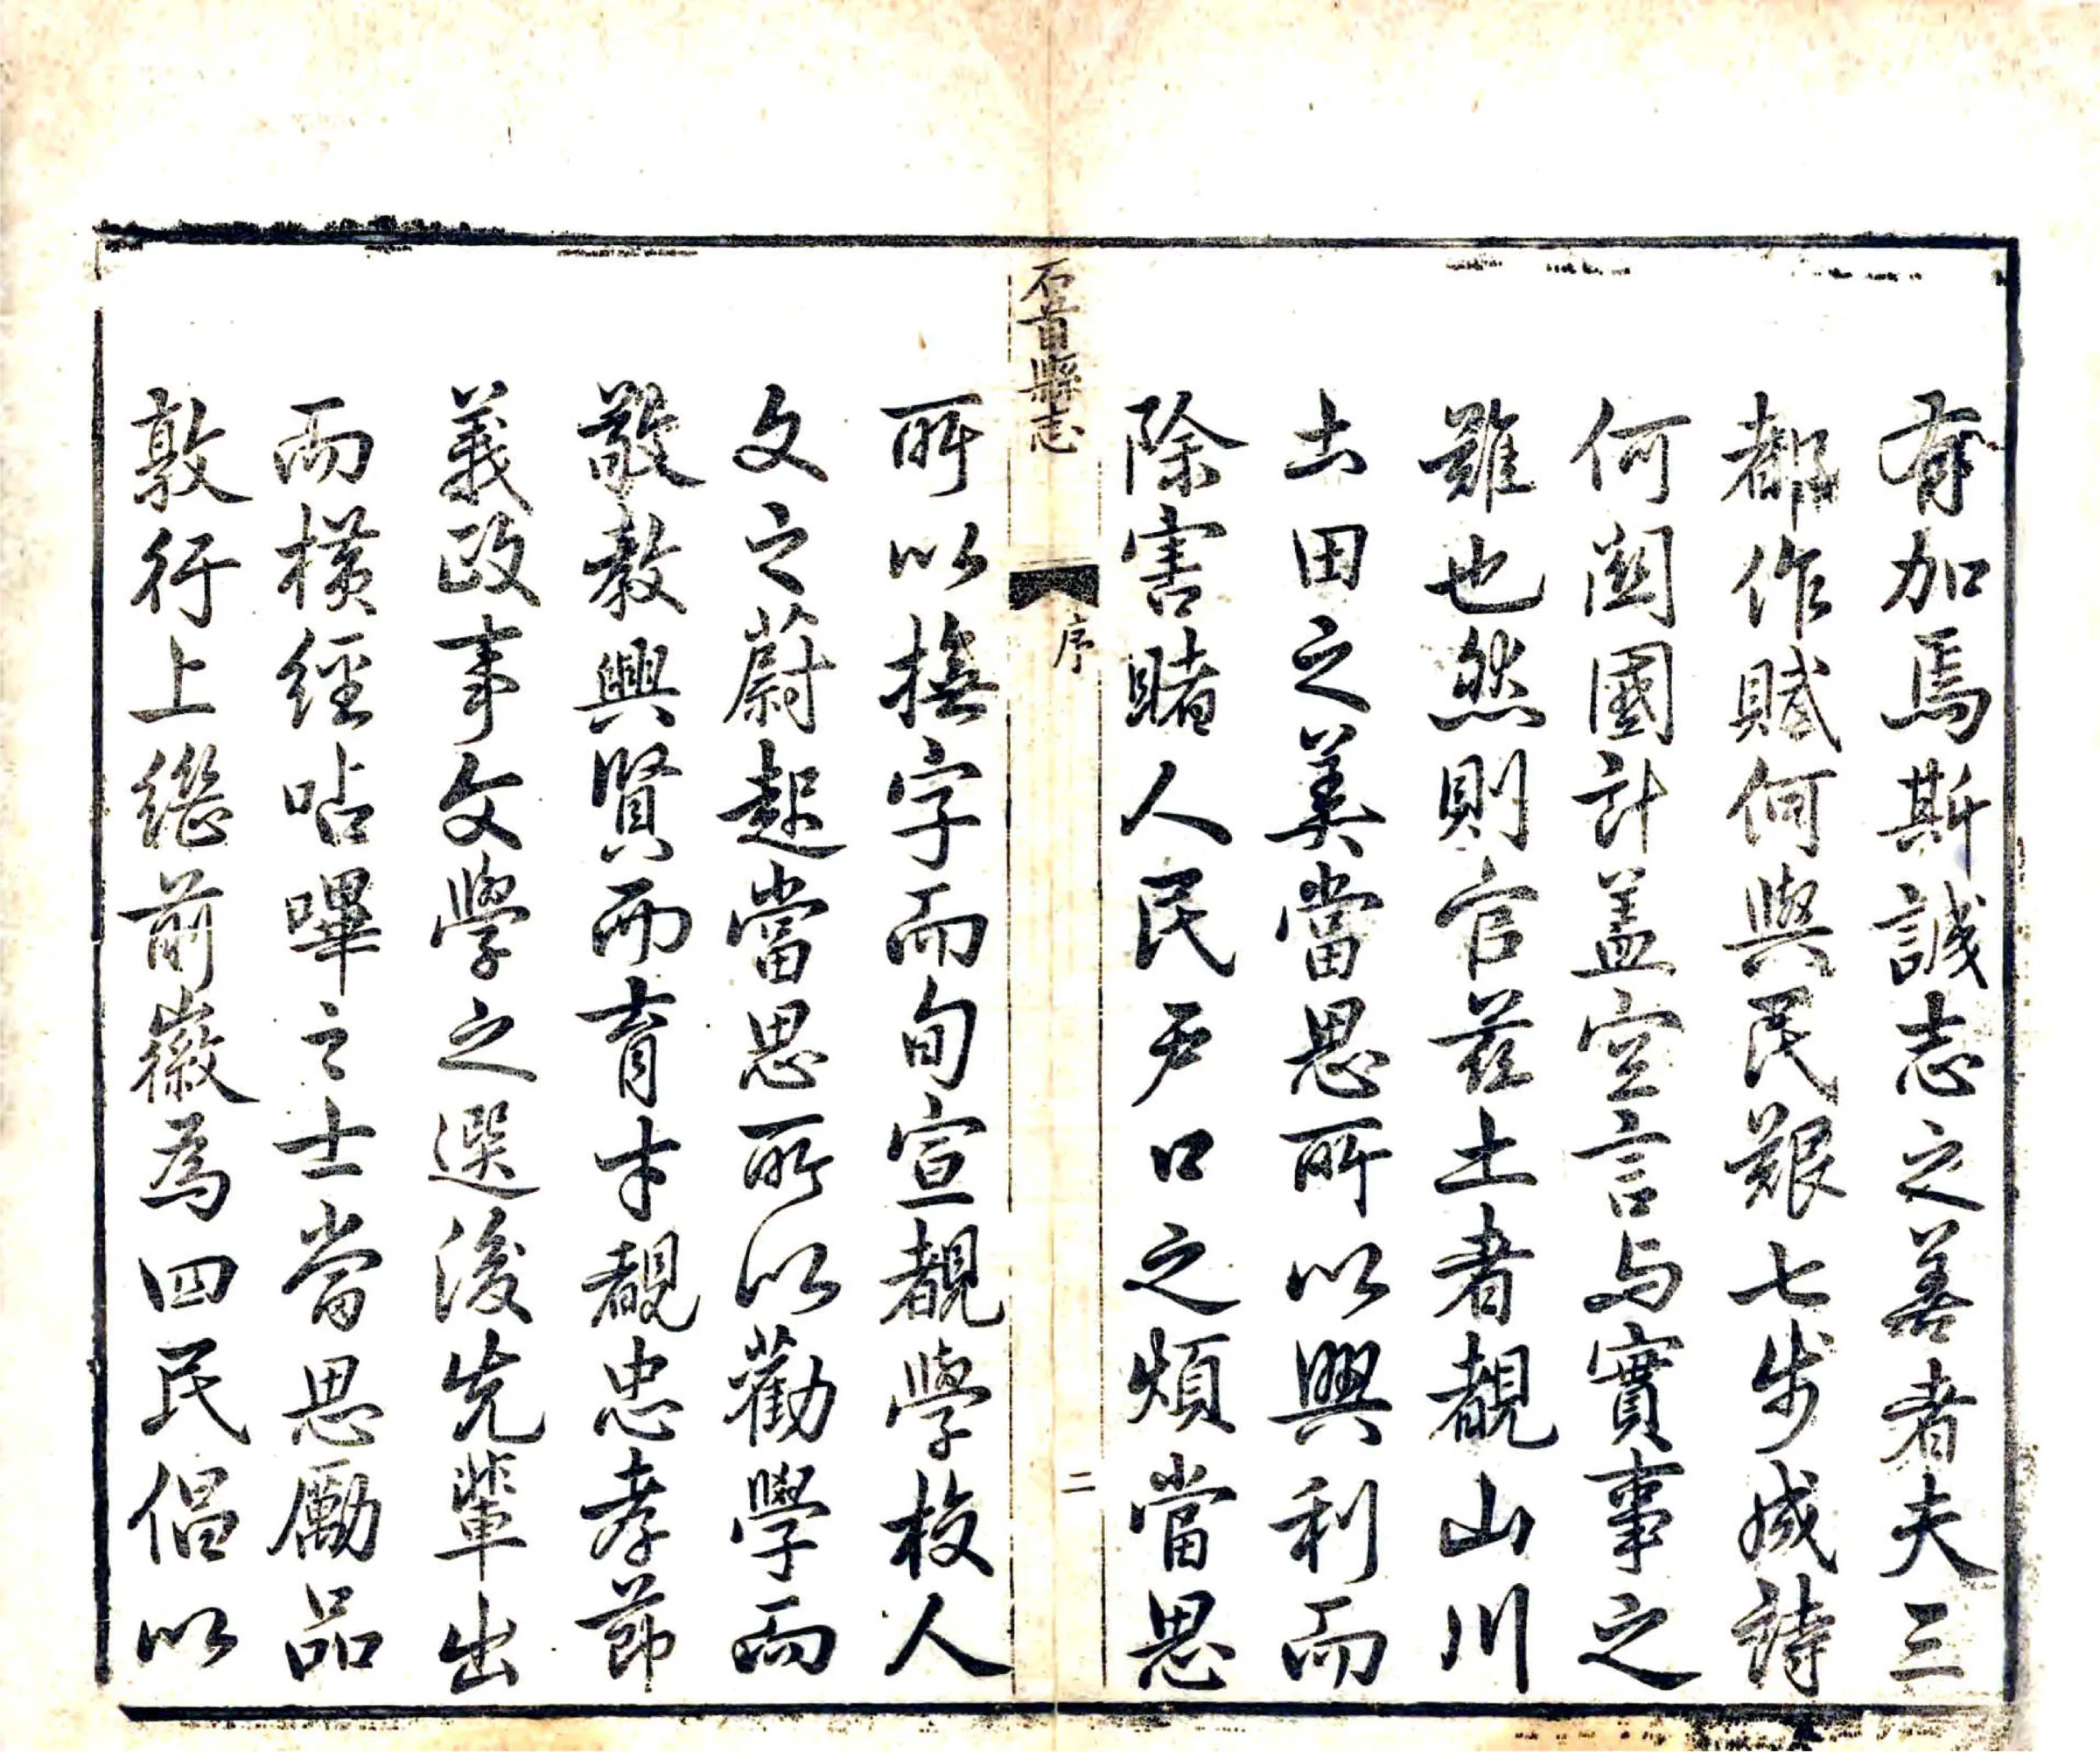 有加焉斯誠志之善者夫三
都作賦何與民艱七步成詩
何關國計蓋空言与實事之
難也然則官茲土者覩山川
土田之美當思所以興利而
除害睹人民戶口之煩當思
石首縣志 序 二
所以撫字而旬宣覩學校人
文之蔚起當思所以勸學而
敬教興賢而育才覩忠孝節
義政事文學之選後先輩出
而橫經呫嗶之士當思勵品
敦行上繼前徽為四民倡以